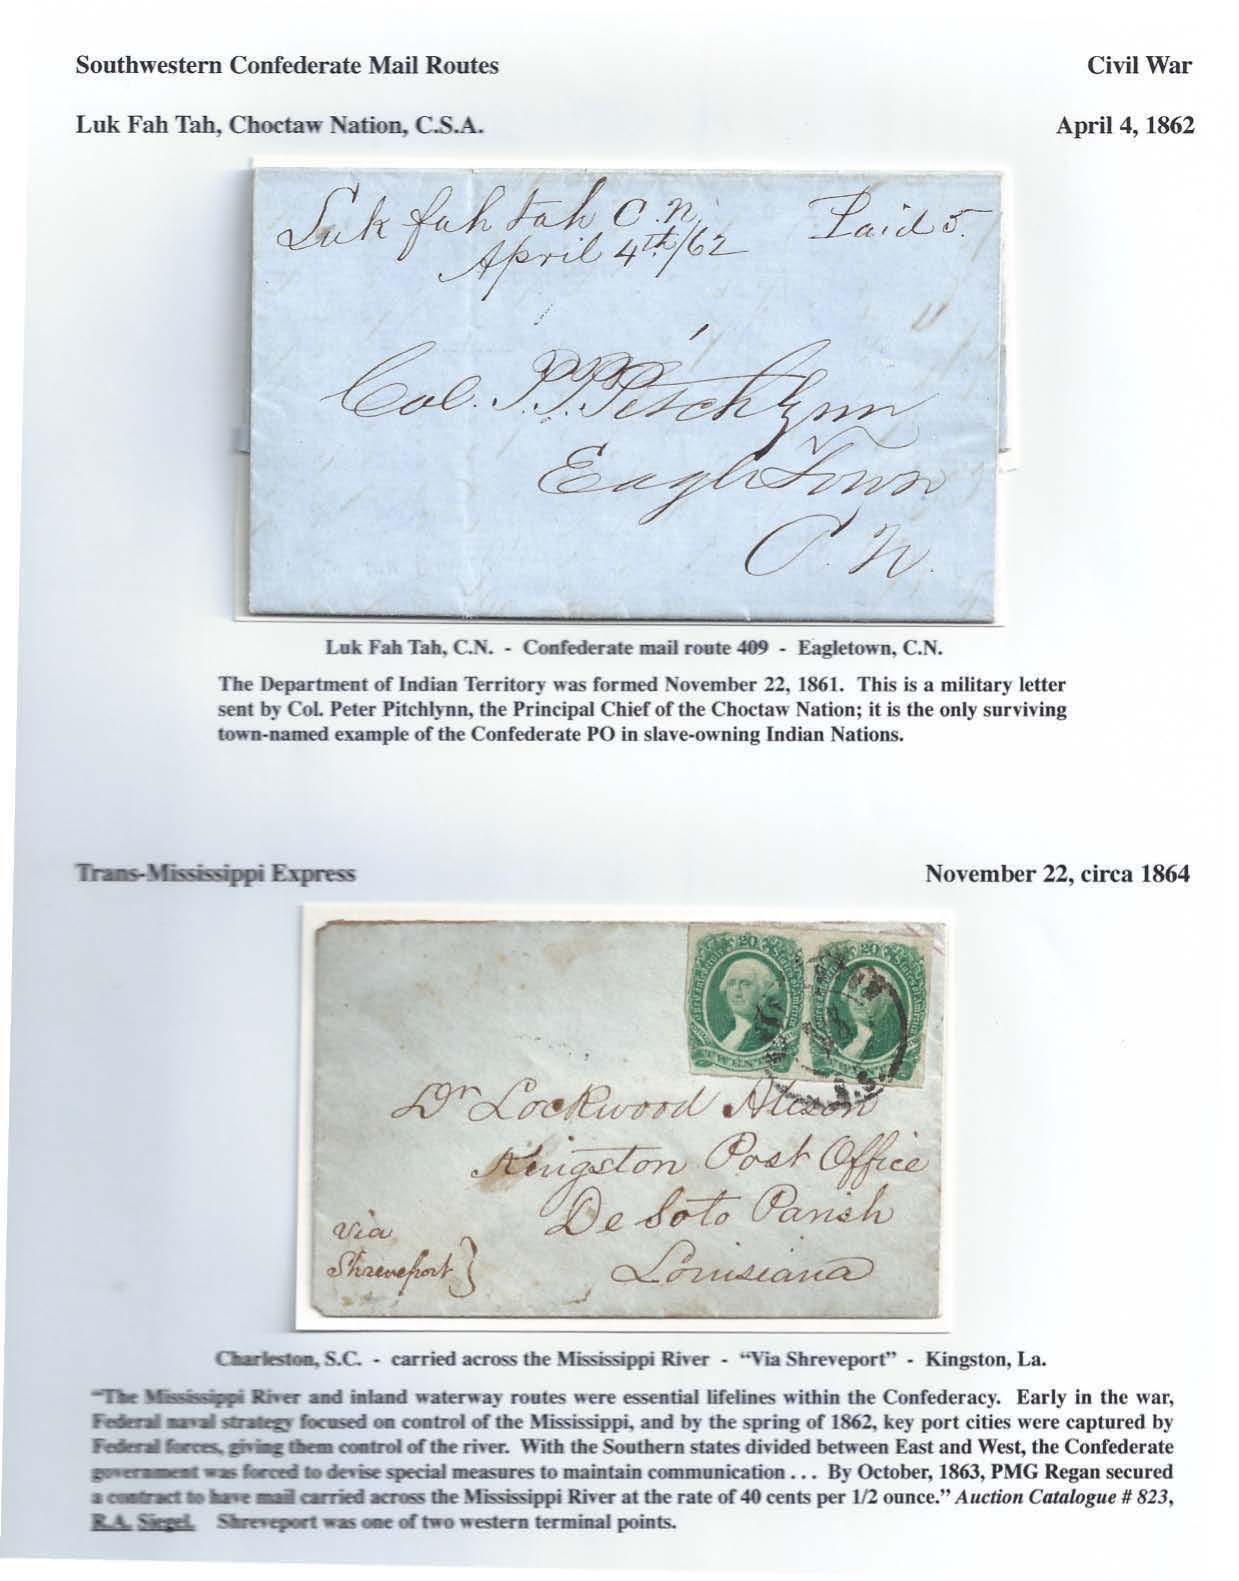 Southwestern Confederate Mail Routes Civil War
Luk Fah Tah, Choctaw Nation, C.S.A. April 4, 1862
Luk fah tah C.N. Paid 5.
April 4th/62
Col. P.P. Pitchlynn
Eagle Town
C.N.
Luk Fah Tah, C.N. - Confederate mail route 409 - Eagletown, C.N.
The Department of Indian Territory was formed November 22, 1861. This is a military letter
sent by Col. Peter Pitchlynn, the Principal Chief of the Choctaw Nation; it is the only surviving
town-named example of the Confederate PO in slave-owning Indian Nations.
Trans-Mississippi Express November 22, circa 1864
20 20
TWENTY
S.C.
Dr Lockwood Alison
Kingston Post Office
De Soto Parish
Louisiana
Via
Shreveport}
Charleston, S.C. - carried across the Mississippi River - "Via Shreveport" - Kingston, La.
"The Mississippi River and inland waterway routes were essential lifelines within the Confederacy. Early in the war,
Federal naval strategy focused on control of the Mississippi, and by the spring of 1862, key port cities were captured by
Federal forces, giving them control of the river. With the Southern states divided between East and West, the Confederate
government was forced to devise special measures to maintain communication . . . By October, 1863, PMG Regan secured
a contract to have mail carried across the Mississippi River at the rate of 40 cents per 1/2 ounce." Auction Catalogue # 823,
R.A. Siegel. Shreveport was one of two western terminal points.